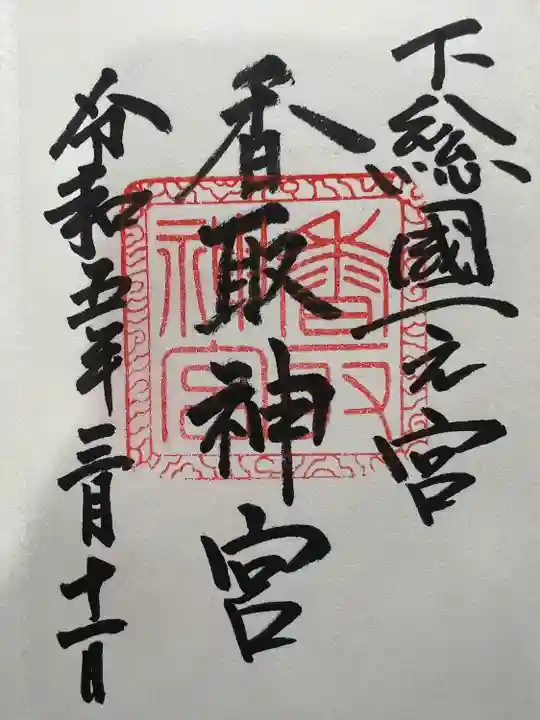 下總國一之宮
香取神宮
令和五年三月十一日
香取神宮